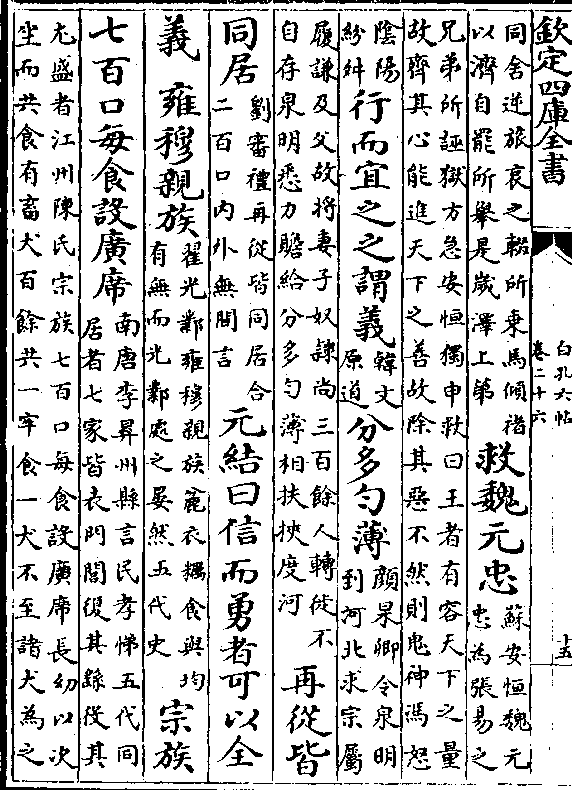 欽定四庫全書
白孔六帖
卷二十六
十五
同舍逆旅哀之輟所乘馬傾褚
以濟自罷所舉是歲澤上第
救魏元忠
蘇安恒魏元
忠為張易之
兄弟所誣獄方急安恒獨申救曰王者有容天下之量
故齊其心能進天下之善故除其惡不然則鬼神馮怒
陰陽
紛舛
行而宜之之謂義
韓文
原道
分多勻薄
顔杲卿令泉明
到河北求宗屬
履謙及父故將妻子奴隸尚三百餘人轉徙不
自存泉明悉力贍給分多勻薄相扶挾度河
再從皆
同居
劉審禮再從皆同居合
二百口内外無閒言
元結曰信而勇者可以全
義 雍穆親族
翟光鄴雍穆親族麄衣糲食與均
有無而光鄴處之晏然五代史
宗族
七百口每食設廣席
南唐李昇州縣言民孝悌五代同
居者七家皆表門閭復其繇役其
尤盛者江州陳氏宗族七百口每食設廣席長幼以次
坐而共食有畜犬百餘共一牢食一犬不至諸犬為之